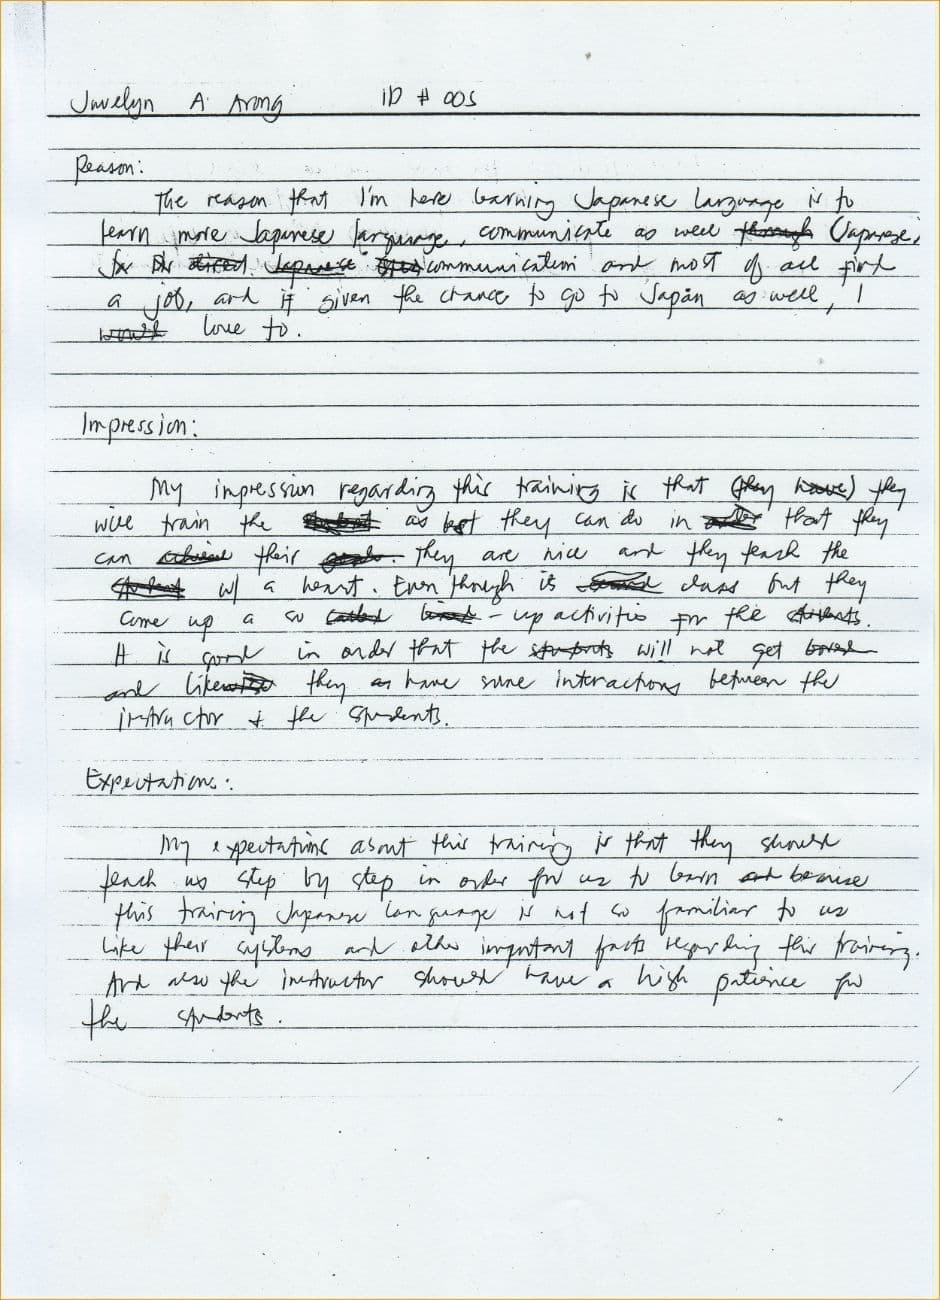 Jovelyn A. Arong ID # 005
Reason:
The reason that I'm here learning Japanese Language is to
learn more Japanese language, communicate as well through (Japanese)
for communication and most of all find
a job, and if given the chance to go to Japan as well, I
would love to.
Impression:
My impression regarding this training is that (they have) they
will train the student as best they can do in order that they
can achieve their goals. They are nice and they teach the
student w/ a heart. Even though is class but they
come up a so called bond-up activities for the students.
It is good in order that the students will not get bored
and likewise they as have some interactions between the
instructor & the students.
Expectations:
My expectations about this training is that they should
teach us step by step in order for us to learn and because
this training Japanese Language is not so familiar to us
like their systems and other important facts regarding this training.
And also the instructor should have a high patience for
the students.